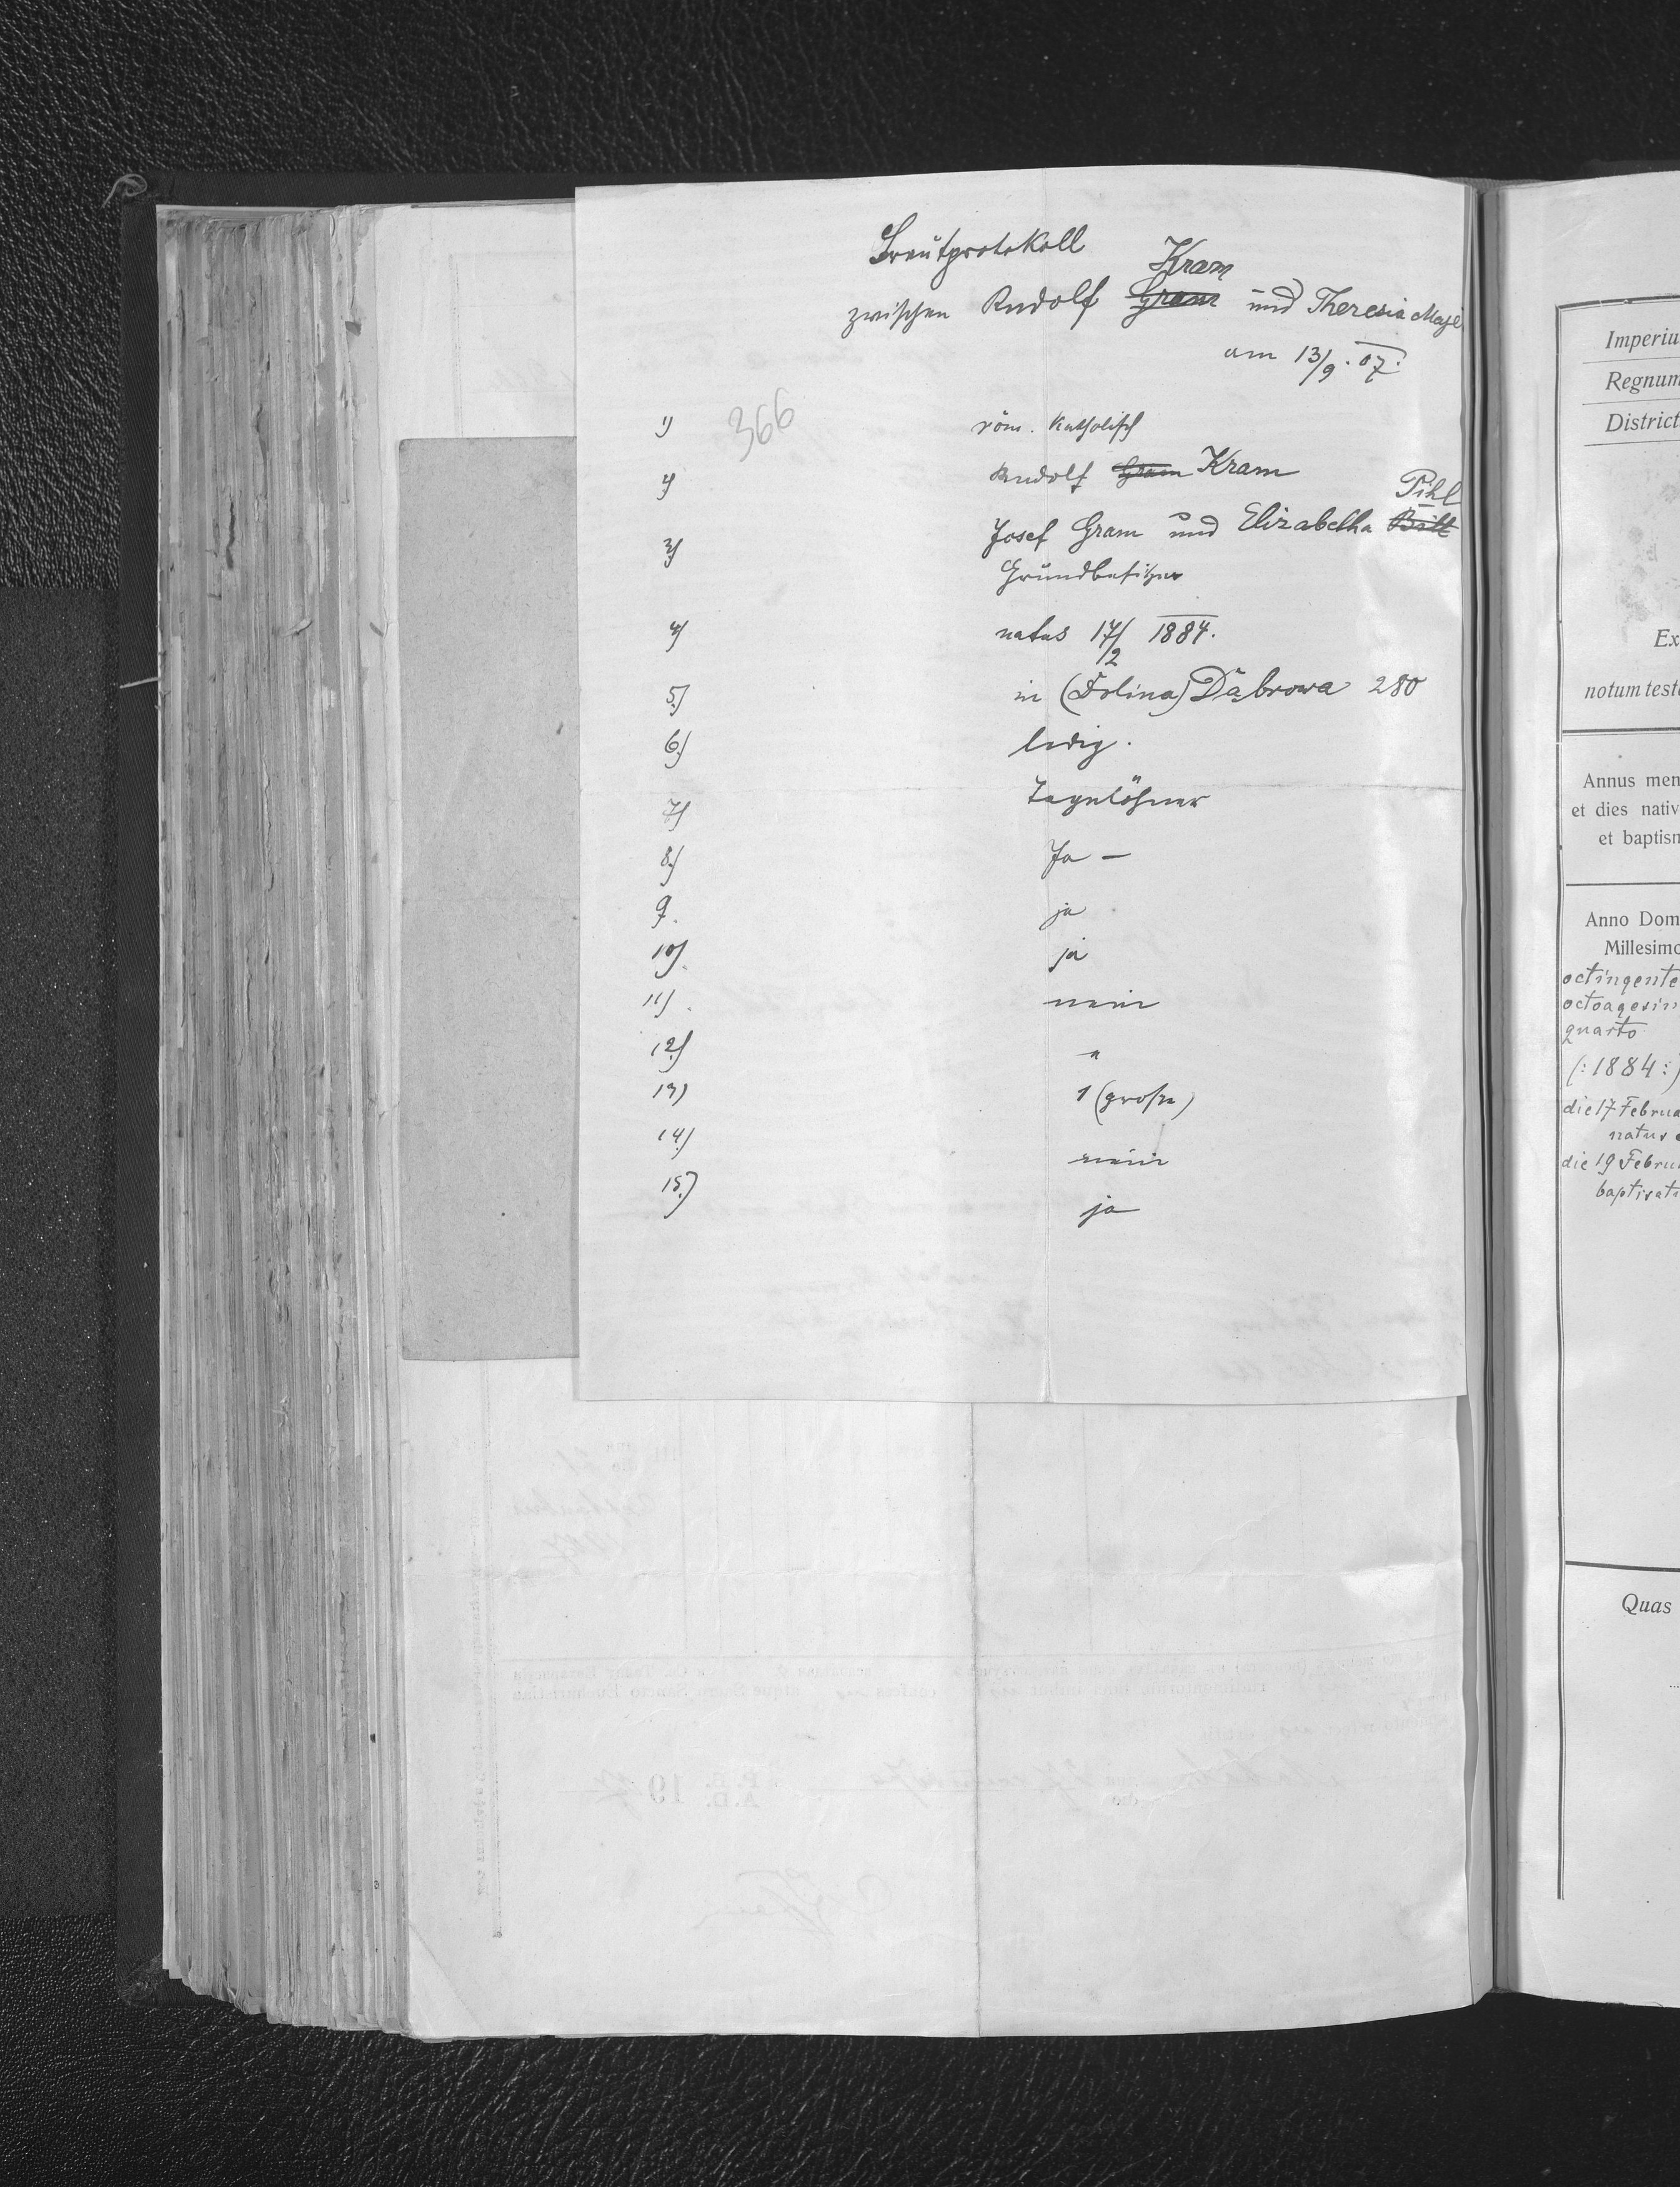 Brautprotokoll
Kram
zwischen Rudolf Gram und Theresia Maje
am 13/9. 07.
366
1) röm. katholisch
2) Rudolf Gram Kram
Pihl
3) Josef Gram und Elizabetha Bill
Grundbesitzer
4) natus 17/2 1884.
5.) in (Dolina) Dąbrowa 280
6.) ledig.
7) Tagelöhner
8.) Ja –
9. ja
10). ja
11). nein
12.) "
13) 1 (große)
14.) nein
15.) ja
Imperiu
Regnum
District
Ex
notum test
Annus men
et dies nativ
et baptism
Anno Dom
Millesimo
octingente
octoagesim
quarto
(:1884:)
die 17 Februa
natus e
die 19 Februa
baptisat
Quas